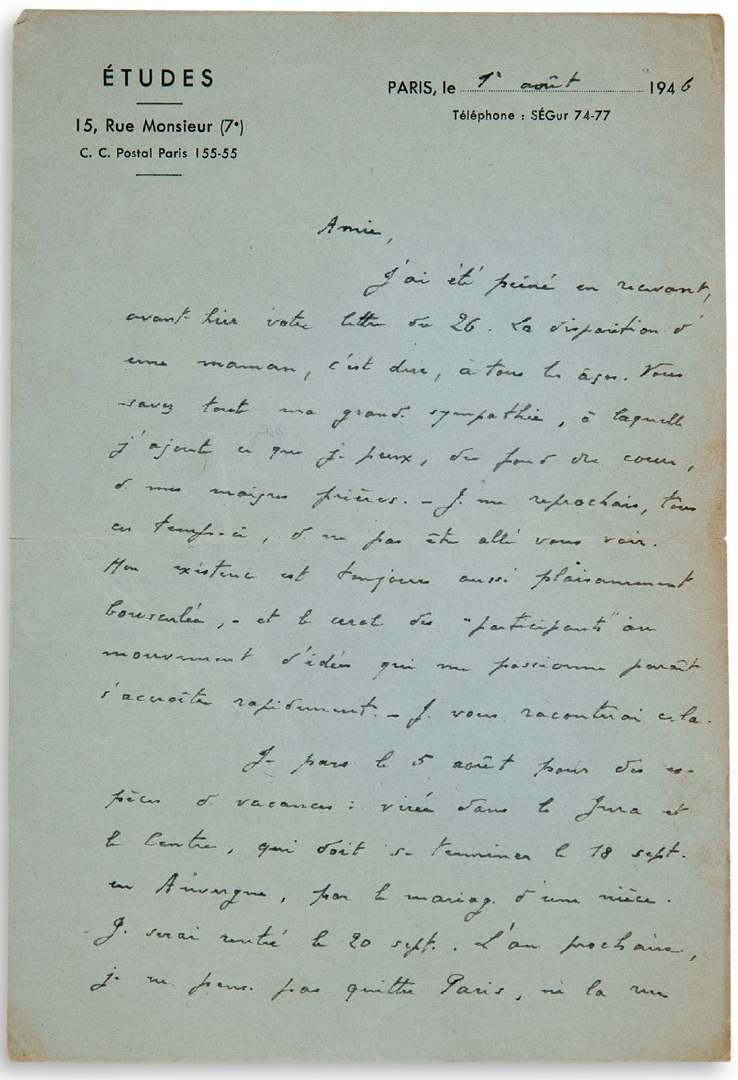 ÉTUDES
15, Rue Monsieur (7e)
C. C. Postal Paris 155-55
PARIS, le 1er août 1946
Téléphone : SÉGur 74-77
Amie,
J'ai été peiné en recevant,
avant-hier votre lettre du 26. La disparition d'
une maman, c'est dur, à tous les âges. Vous
savez toute ma grande sympathie, à laquelle
j'ajoute ce que je peux, du fond du cœur,
de mes maigres prières. – Je me reprochais, tous
ces temps-ci, de ne pas être allé vous voir.
Mon existence est toujours aussi plaisamment
bousculée, – et le cercle des "participants" au
mouvement d'idées qui me passionne paraît
s'accroître rapidement. – Je vous raconterai cela.
Je pars le 5 août pour des es-
pèces de vacances : virée dans le Jura et
le Centre, qui doit se terminer le 18 sept.
en Auvergne, par le mariage d'une nièce.
Je serai rentré le 20 sept. L'an prochain,
je ne pense pas quitter Paris, ni la rue